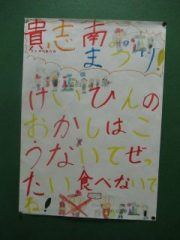 貴志南
まつり!
けいひんの
おかしはこ
うないでぜっ
たい食べないで
ね!